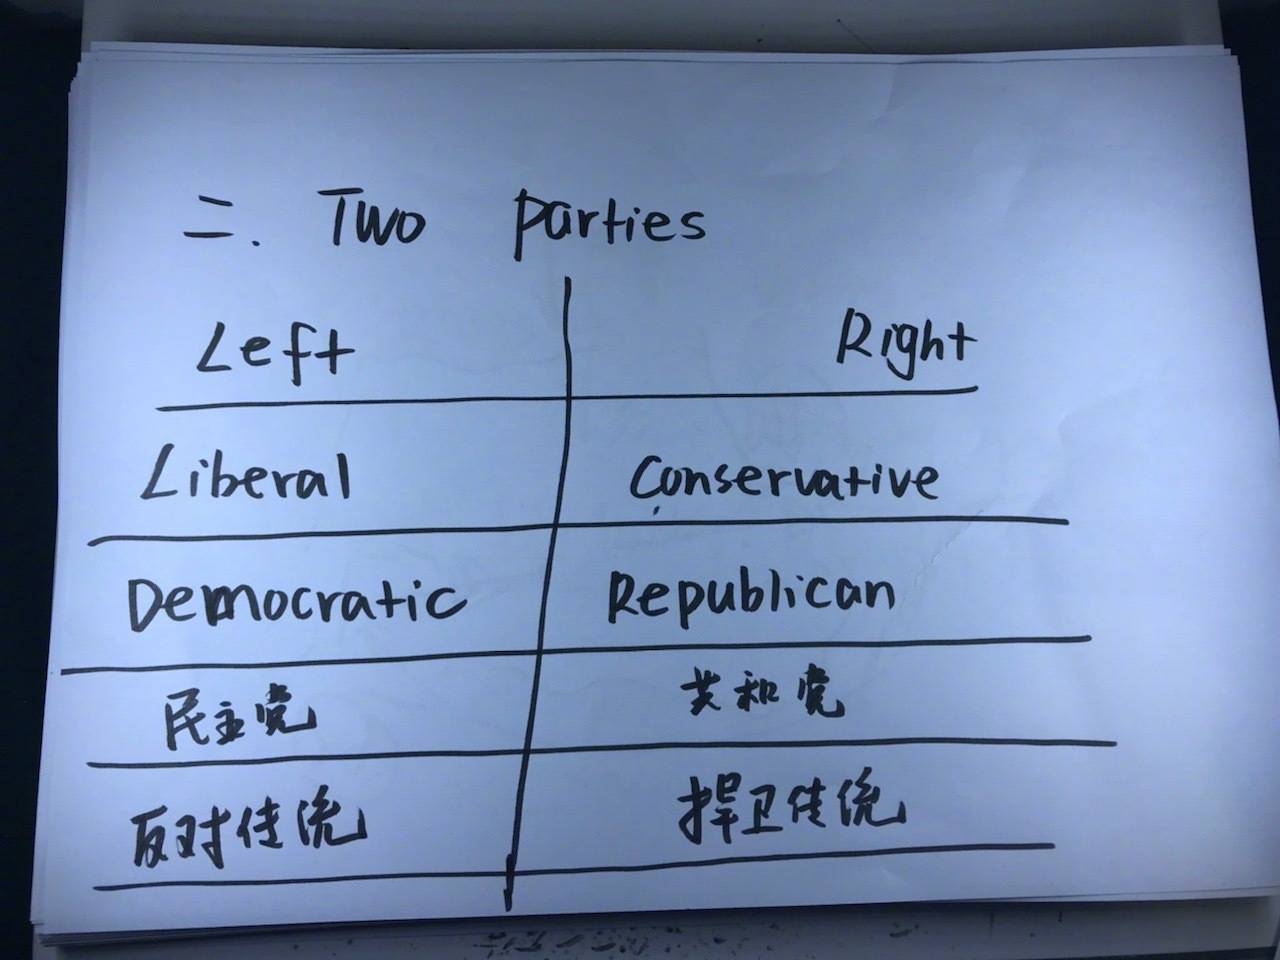 二. Two parties
Left Right
Liberal Conservative
Democratic Republican
民主党 共和党
反对传统 捍卫传统